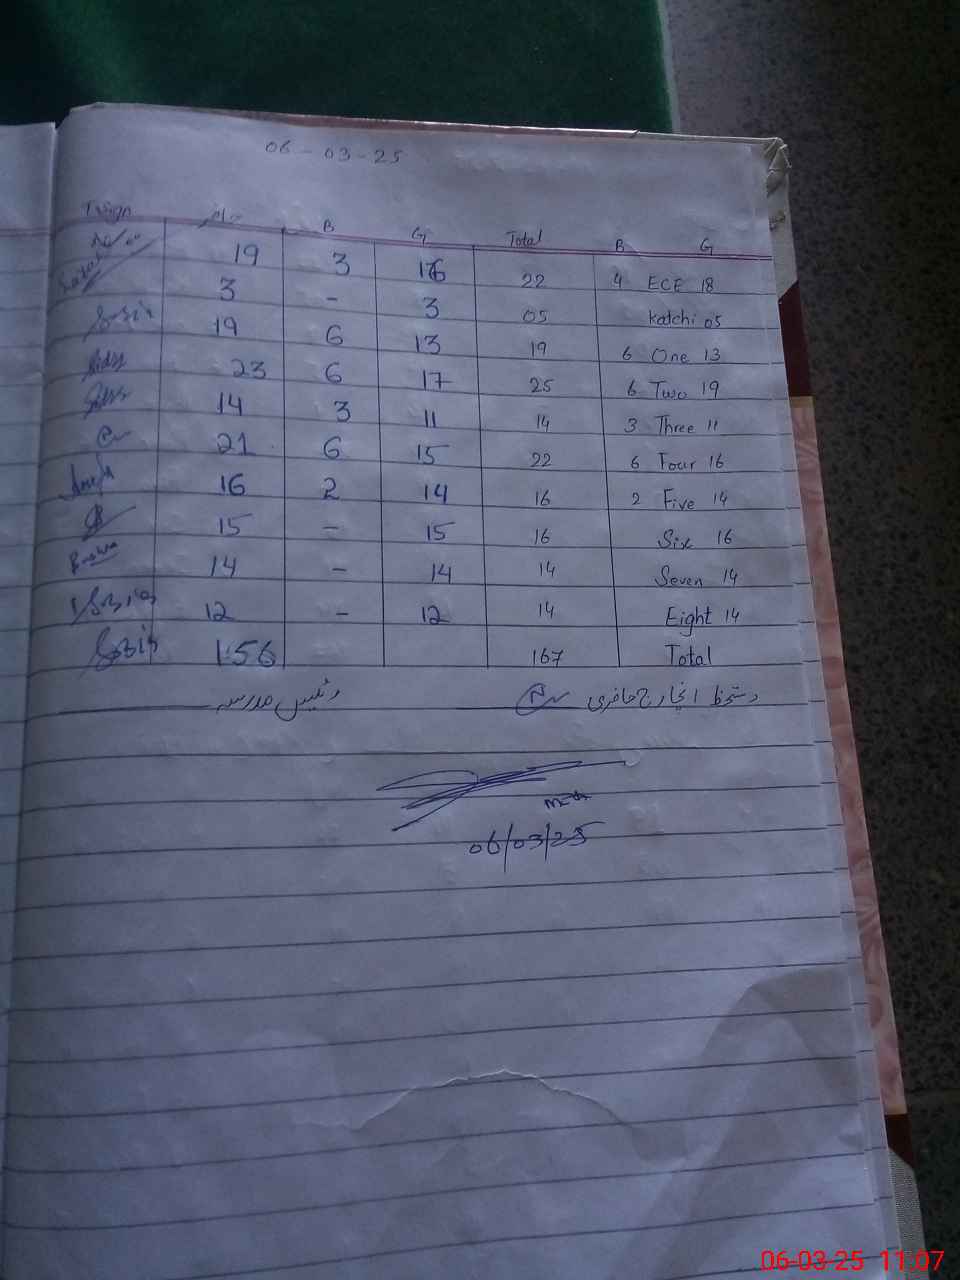 06-03-25
حاضر B G Total B G
19 3 16 22 4 ECE 18
3 - 3 05 Katchi 05
19 6 13 19 6 One 13
23 6 17 25 6 Two 19
14 3 11 14 3 Three 11
21 6 15 22 6 Four 16
16 2 14 16 2 Five 14
15 - 15 16 Six 16
Bushra 14 - 14 14 Seven 14
12 - 12 14 Eight 14
156 167 Total
دستخط انچارج حاضری رئیس مدرسہ
06/03/25
06-03-25 11:07